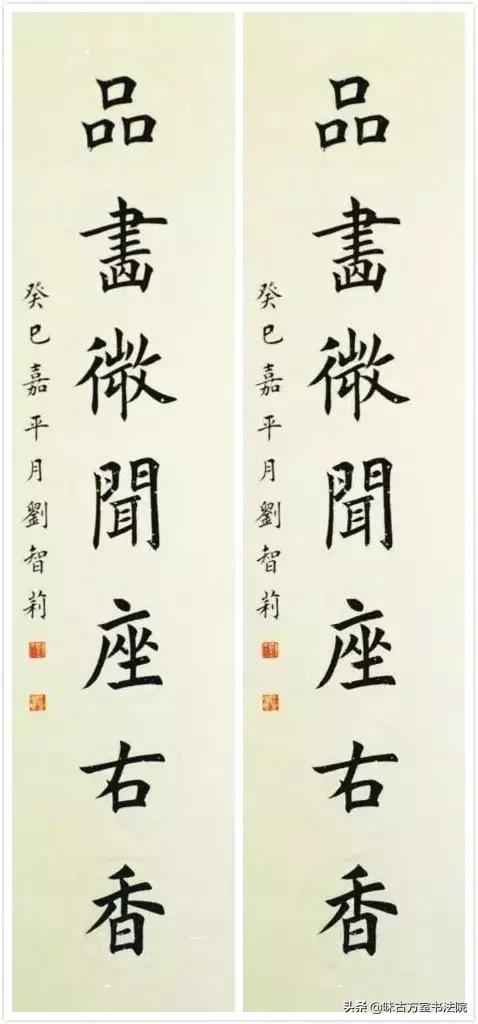 品畵微聞座右香
癸巳嘉平月劉智莉
品畵微聞座右香
癸巳嘉平月劉智莉
头条 @味古方室书法院